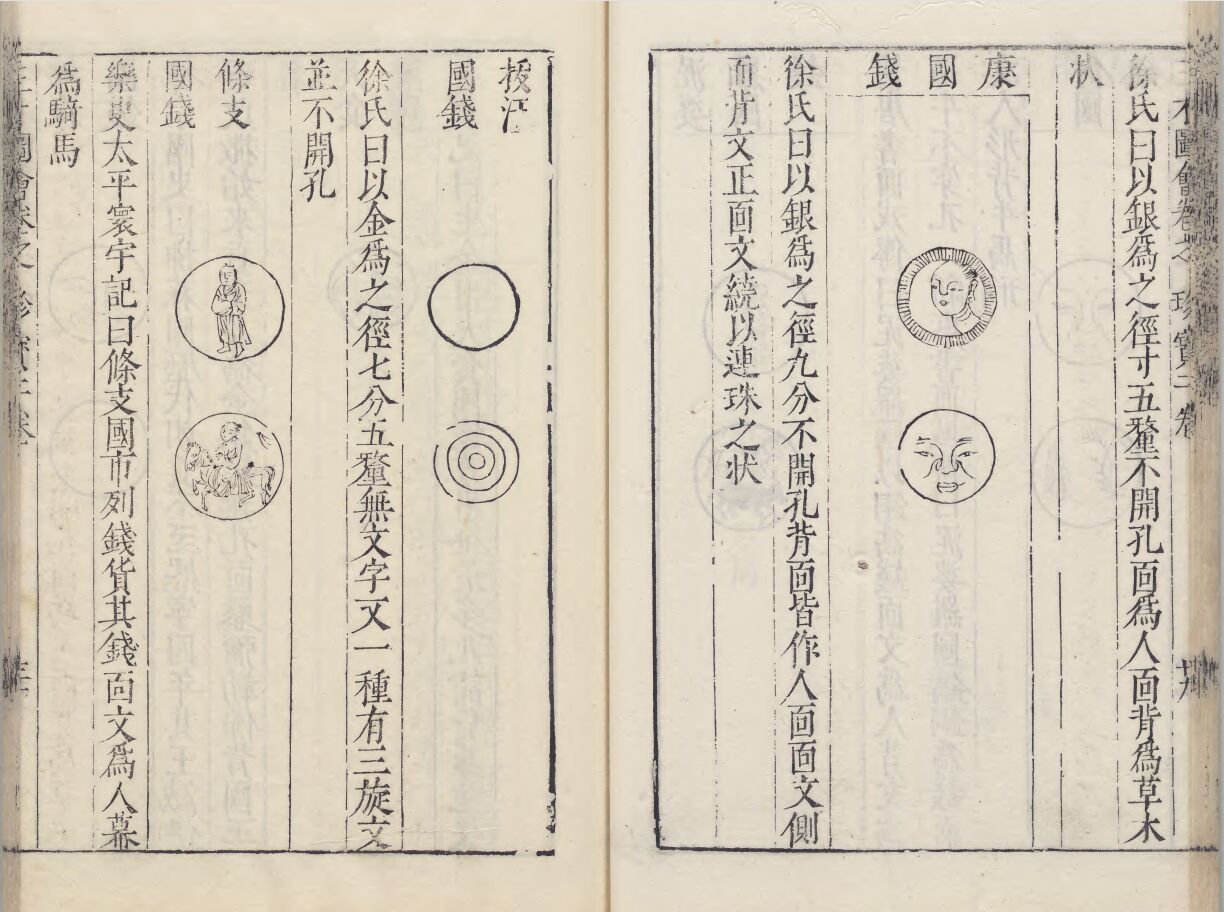 三才圖會卷之 珍寶二卷 廿九
徐氏曰以銀爲之徑寸五釐不開孔面爲人面背爲草木
狀
康國錢
徐氏曰以銀爲之徑九分不開孔背面皆作人面面文側
而背文正面文繞以連珠之状
拔江
國錢
徐氏曰以金爲之徑七分五釐無文字又一種有三旋文
並不開孔
條支
國錢
樂史太平寰宇記曰條支國市列錢貨其錢面文爲人幕
爲騎馬